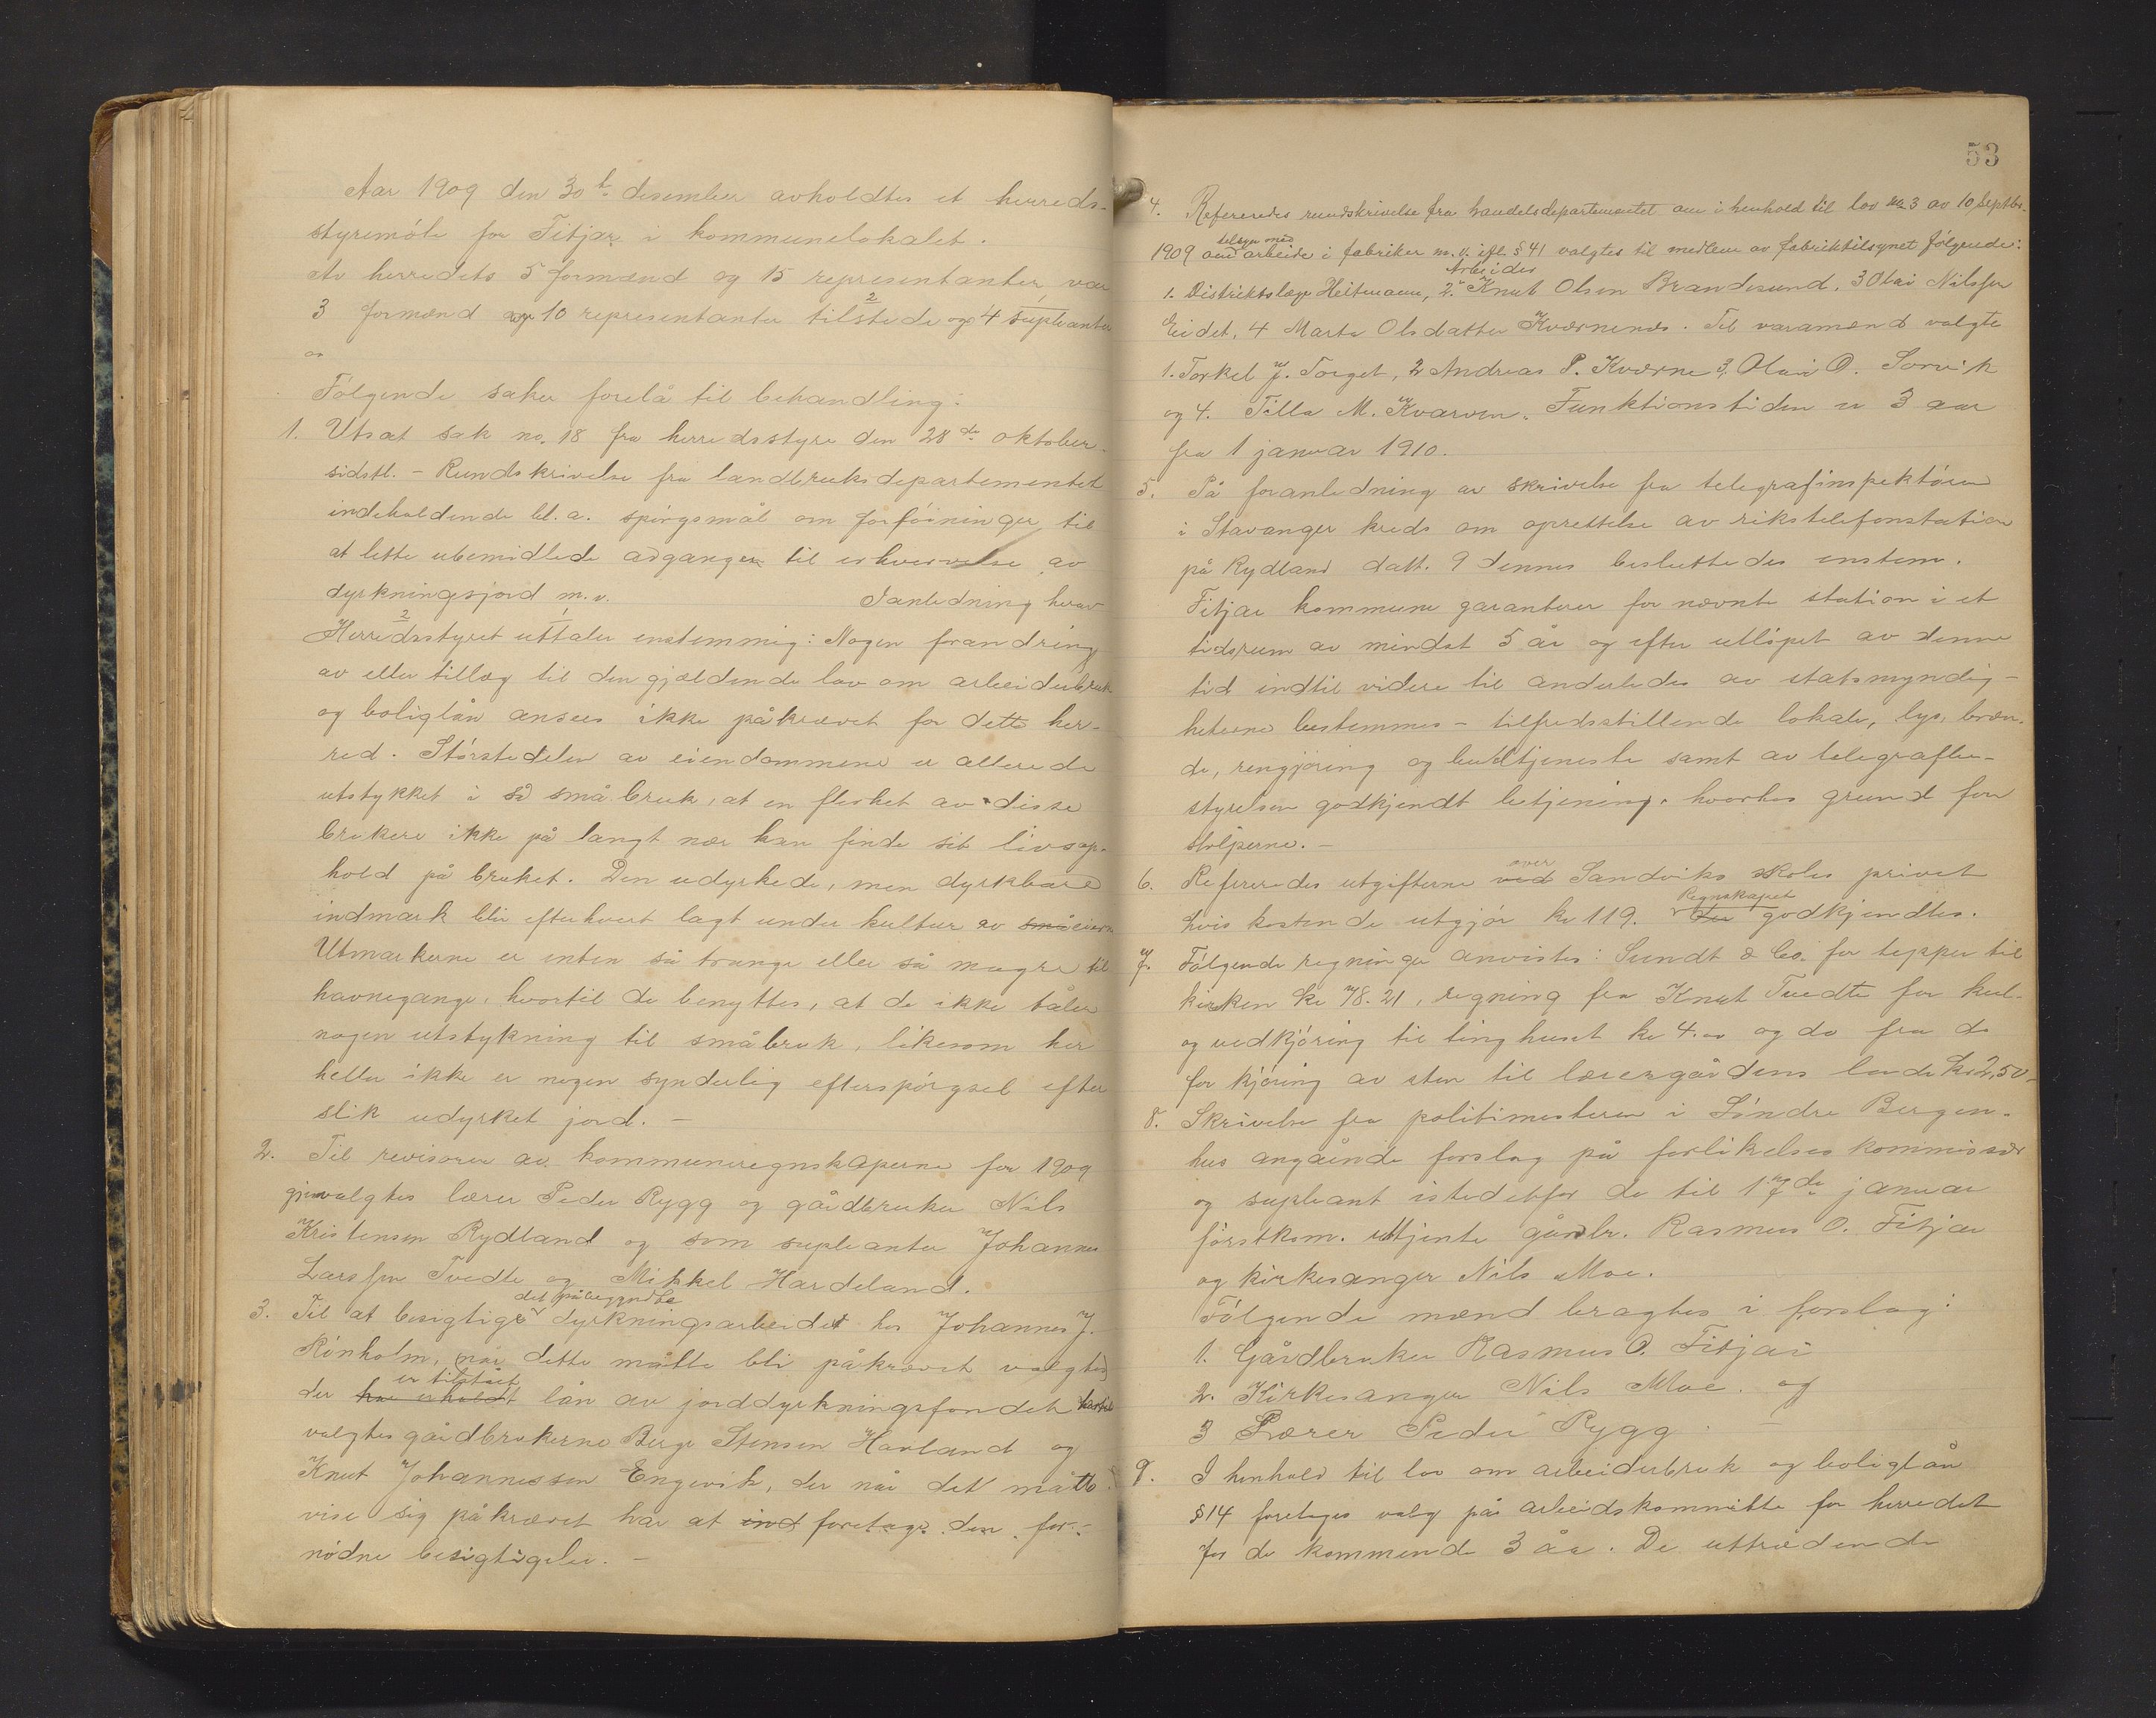 Aar 1909 den 30te desember avholdtes et herreds-
styremöte for Fitjar i kommunelokalet.
Av herredets 5 formænd og 15 representanter var
3 formænd og 10 representanter tilstede og 4 supleanter
2
Fölgende saker forelå til behandling:
1. Utsat sak no. 18 fra herredsstyre den 28de oktober
sidstl. - Rundskrivelse fra landbruksdepartementet
indeholdende bl. a. spörgsmål om forföininger til
at lette ubemidlede adgangen til erhvervelse av
dyrkningsjord m. v. I anledning herav
2 1
Herredsstyret uttaler enstemmig: Nogen forandring
av eller tillæg til den gjældende lov om arbeiderbruk
og boliglån ansees ikke påkrævet for dette her-
red. Störstedelen av eiendommene er allerede
utstykket i så små bruk, at en flerhet av disse
brukere ikke på langt nær kan finde sit livsop-
hold på bruket. Den udyrkede, men dyrkbare
indmark blir efterhvert lagt under kultur av små eierne
Utmarkene er enten så trange eller så magre til
havnegange, hvortil de benyttes, at de ikke tåler
nogen utstykning til småbruk, likesom her
heller ikke er nogen synderlig efterspörgsel efter
slik udyrket jord. -
2. Til revisorer av kommuneregnskaperne for 1909
gjenvalgtes lærer Peder Rygg og gårdbruker Nils
Kristensen Rydland og som supleanter Johannes
Larssen Tvedte og Mikkel Hardeland.
det påbegyndte
3. Til at besigtige dyrkningsarbeidet hos Johannes J.
Rinholm, når dette måtte bli påkrævet valgtes
er tilstaaet
der har erholdt lån av jorddyrkningsfondet
valgtes gårdbrukerne Berge Stensen Havland og
Knut Johannessen Engevik, der når det måtte
vise sig påkrævet har at ind foretage den for-
nödne besigtigelse. -
53
4. Refereredes rundskrivelse fra handelsdepartementet om i henhold til lov no 3 av 10 septbr.
tilsyn med
1909 om arbeide i fabriker m. v. ifl. § 41 valgtes til medlem av fabriktilsynet fölgende:
Arbeider
1. Distriktslæge Heitmann, 2. Knut Olsen Brandasund, 3 Olai Nilssen
Eidet, 4 Marta Olsdatter Kværnenes. Til varamænd valgte
1. Torkel J. Torget, 2 Andreas P. Kværne 3, Olai O. Sørvik
og 4. Tilla M. Kvarven. Funktionstiden er 3 aar
fra 1 januar 1910.
5. På foranledning av skrivelse fra telegrafinspektören
i Stavanger kreds om oprettelse av rikstelefonstation
på Rydland datt. 9 dennes besluttedes enstem.
Fitjar kommune garanterer for nævnte station i et
tidsrum av mindst 5 år og efter utlöpet av denne
tid indtil videre til anderledes av statsmyndig-
heterne bestemmes - tilfredsstillende lokale, lys, bræn-
de, rengjöring og budtjeneste samt av telegrafbe-
styrelsen godkjendt betjening, hvorhos grund for
stolperne. -
over
6. Refereredes utgifterne ved Sandviks skoles privet
Regnskapet
hvis kostende utgjör kr 119. Der godkjendtes.
7. Fölgende regninger anvistes: Sundt & Co. for tepper til
kirken kr 78.21, regning fra Knut Tvedte for kul-
og vedkjöring til tinghuset kr 4.00 og do fra do
for kjöring av sten til lærergårdens lade kr 2,50 -
8. Skrivelse fra politimesteren i Söndre Bergen-
hus angående forslag på forlikelseskommissær
og supleant istedetfor de til 17de januar
förstkom. uttjente gårdbr. Rasmus O. Fitjar
og kirkesanger Nils Moe.
Fölgende mænd bragtes i forslag:
1. Gårdbruker Rasmus O. Fitjar
2. Kirkesanger Nils Moe. og
3 Lærer Peder Rygg. -
9. I henhold til lov om arbeiderbruk og boliglån
§ 14 foretoges valg på arbeidskommitte for herredet
for de kommende 3 år. De uttrædende